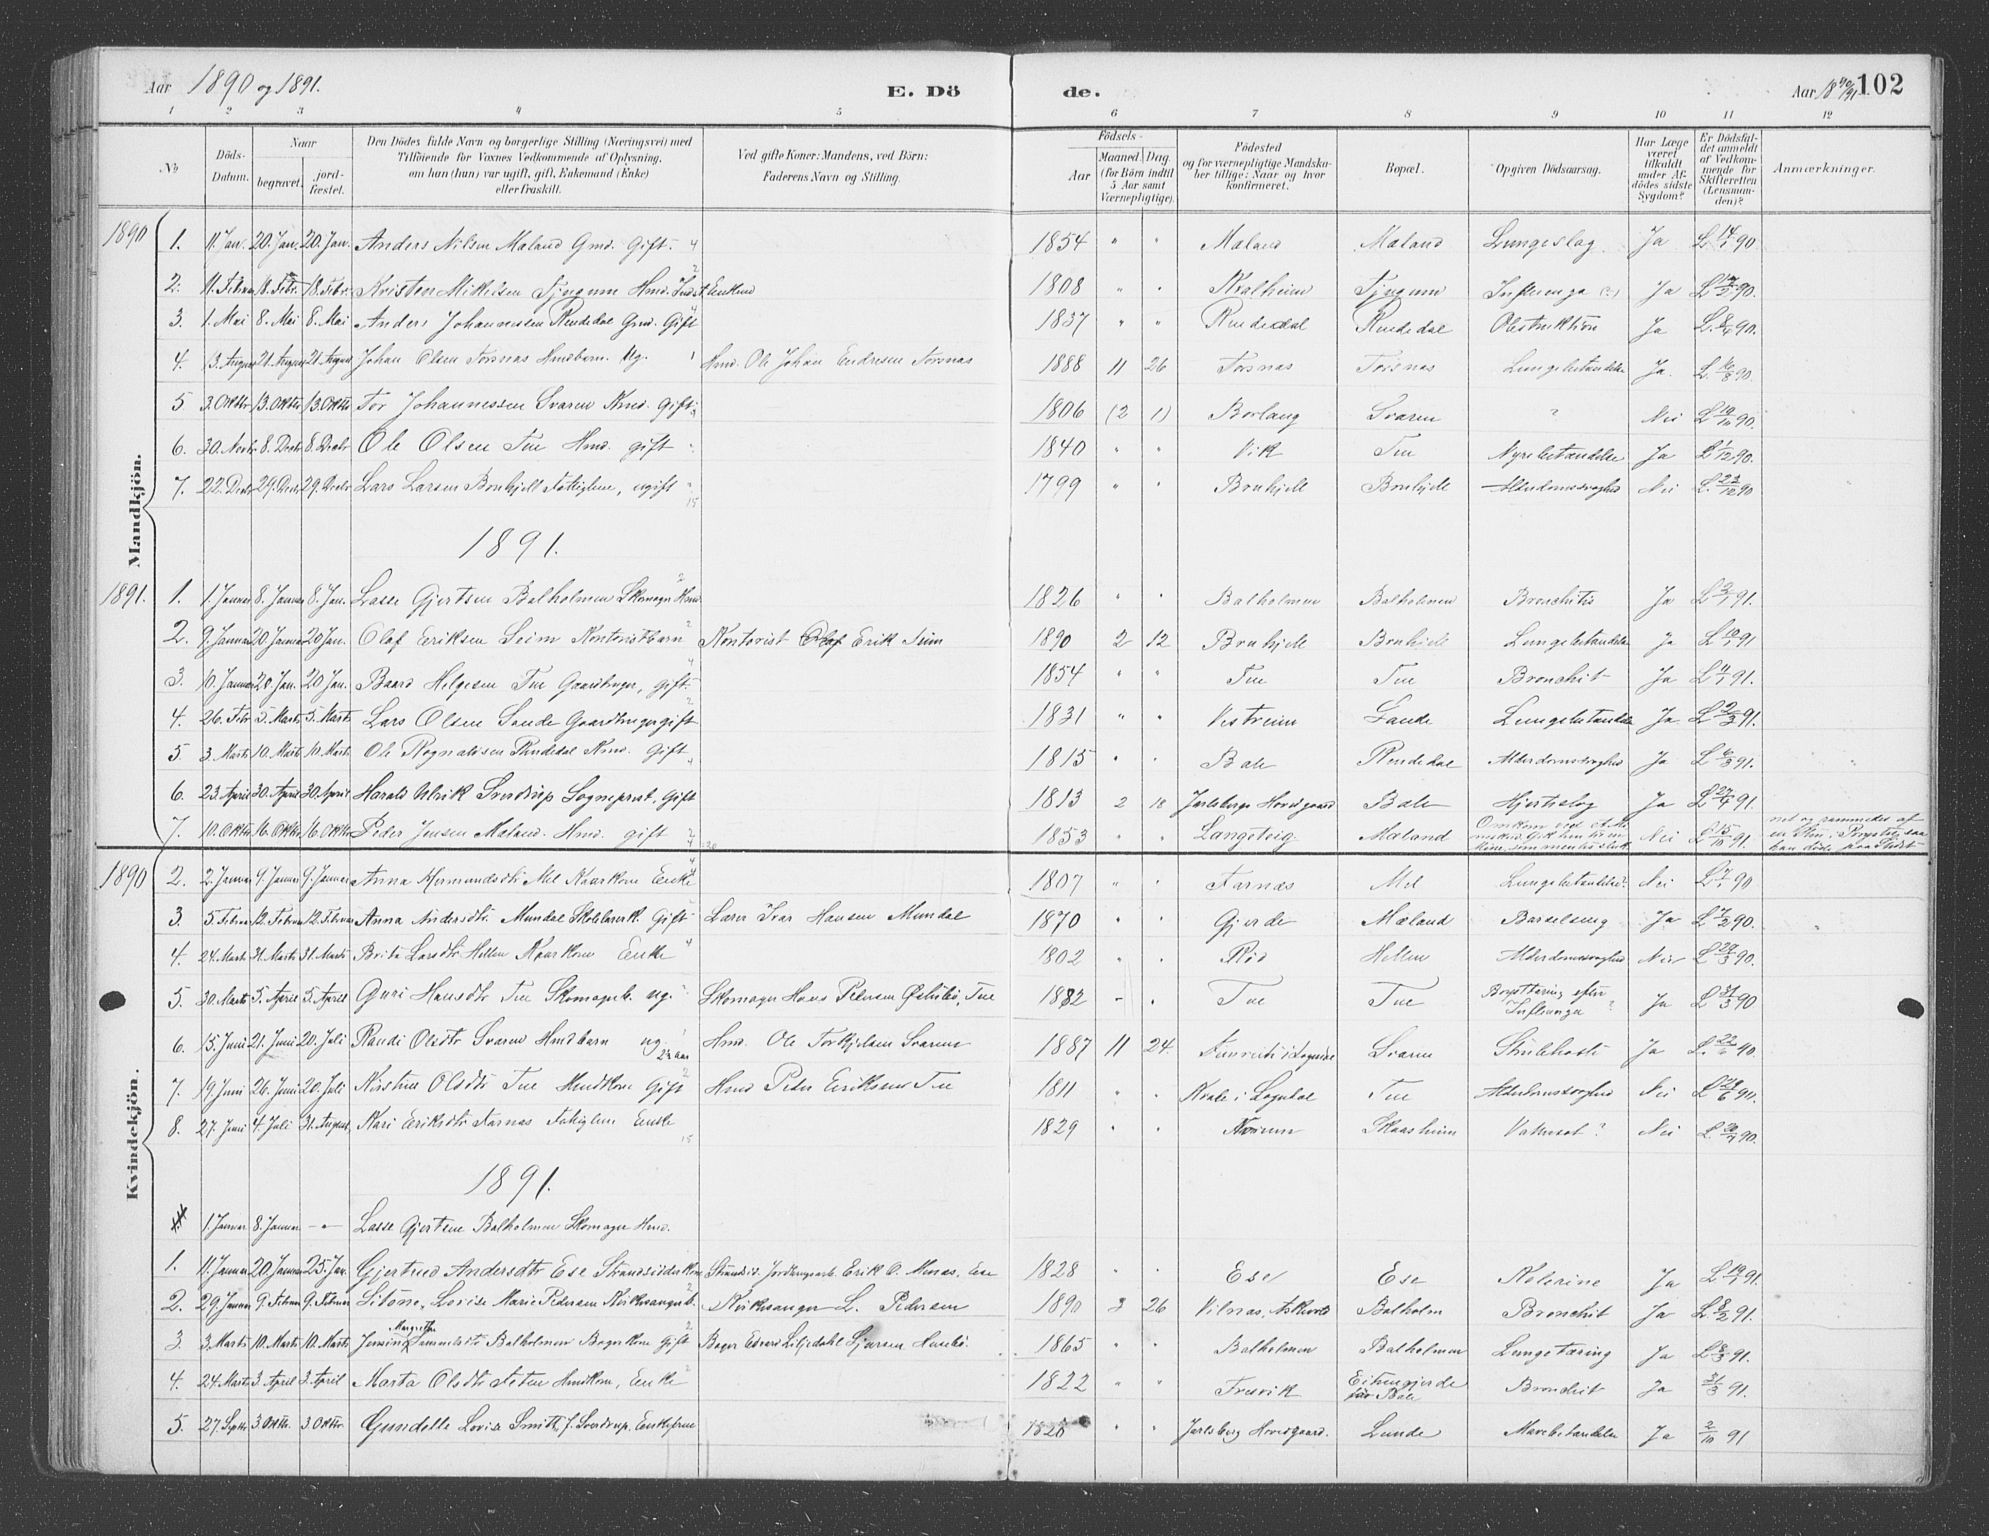 Aar 1890 og 1891. E. Dö de. Aar 18 90/91 102
1 2 3 4 5 6 7 8 9 10 11 12
No
Döds-Datum.
Naar
begravet.
jord-fæstet.
Den Dödes fulde Navn og borgerlige Stilling (Næringsvei) med
Tilföiende for Voxnes Vedkommende af Oplysning,
om han (hun) var ugift, gift, Enkemand (Enke)
eller fraskilt.
Ved gifte Koner: Mandens, ved Börn:
Faderens Navn og Stilling.
Födsels-
Aar
Maaned. Dag.
(for Börn indtil
5 Aar samt
Værnepligtige).
Födested
og for værnepligtige Mandska-
ber tillige: Naar og hvor
konfirmeret.
Bopæl.
Opgiven Dödsaarsag.
Har Læge
været
tilkaldt
under Af-
dödes sidste
Sygdom?
Er Dödsfal-
det anmeldt
af Vedkom-
mende for
Skifteretten
(Lensman-
den)?
Anmærkninger.
Mandkjön.
1890 1. 11. Jan. 20. Jan. 20. Jan. Anders Nilsen Mæland Gmd. Gift 1854 " " Mæland Mæland Lungeslag Ja L 14/1 90
2. 11. Febru 18. Febr. 18. Febr. Kristen Mikkelsen Tjugum Hmd. Enkmd 1808 " " Kvalheim Tjugum Influenza (?) Ja L 12/2 90.
3. 1. Mai 8. Mai 8. Mai Anders Johannessen Rendedal Gmd. Gift 1837 " " Rendedal Rendedal Obstruktion Ja L. 8/5 90.
4. 13. August 21. August 21. August Johan Olsen Torsnas Hmdbarn. Ug. Hmd. Ole Johan Endresen Torsnas 1888 11 26 Torsnas Torsnas Lungebetændelse Ja. L. 16/8 90.
5 3. Oktbr 13. Oktbr 13. Oktbr Tor Johannessen Svaren Kmd. Gift 1806 (2 1) Borlaug Svaren ? Nei L 10/10 90.
6. 30. Novbr 8. Decbr 8. Decbr Ole Olsen Tue Hmd. gift 1840 " " Vik Tue Nyrebetændelse Ja L 1/12 90.
7. 22. Decbr 29. Decbr 29. Decbr Lars Larsen Brnhjell Fattiglem, ugift 1799 " " Brnhjell Brnhjell Alderdomssvaghed Nei L. 23/12 90
1891.
1891. 1. 1. Januar 8. Januar 8. Jan. Lasse Gjertsen Balholmen Skomager Hmd 1826 " " Balholmen Balholmen Bronchitis Ja L 2/1 91.
2. 9. Januar 20. Januar 20. Jan. Olaf Eriksen Seim Kontoristbarn Kontorist Olaf Erik Seim 1890 2 12 Brnhjell Brnhjell Lungebetændelse Ja L 10/1 91
3. 10. Januar 20. Jan. 20. Jan. Baard Helgesen Tue Gaardbruger, gift 1854 " " Tue Tue Bronchit Ja L 11/1 91.
4. 26. Febr 5. Marts 5. Marts Lars Olsen Sande Gaardbruger gift 1831 " " Vestreim Sande Lungebetændelse Ja L 2/3 91.
5 3. Marts 10. Marts 10. Marts Ole Rognaldsen Rendedal Kmd. Gift 1815 " " Bale Rendedal Alderdomssvaghed Ja L 6/3 91.
6. 23. April 30. April 30. April Harald Ulrik Sverdrup Sogneprest. Gift 1813 2 18 Jarlsbergs Hovedgaard Bale Hjerteslag Ja L 27/4 91.
7. 10. Oktbr 16. Oktbr 16. Oktbr Peder Jensen Mæland. Hmd. gift 1853 " Langetvig Mæland Nei L 15/10 91.
Kvindekjön.
1890 2. 2. Januar 9. Januar 9. Januar Anna Hermundsdtr Mel Kaarkone Enke 1807 " " Farnæs Mel Lungebetændelse. Nei L 7/1 90
3. 5. Februar 12. Februar 12. Februar Anna Andersdtr. Mundal Skolelærerk. Gift Lærer Ivar Hansen Mundal 1870 " " Gjerde Mæland Barselseng Ja L 7/2 90.
4. 24. Marts 31. Marts 31. Marts Brita Larsdtr Hellen Kaarkone Enke 1802 " " Röd Hellen Alderdomssvaghed Nei L 29/3 90.
5. 30. Marts 5. April 5. April Guri Hansdtr Tue Skomagerb. ug. Skomager Hans Pedersen Östebö, Tue 1882 - " Tue Tue Brysttæring efter Influenza ? Ja L 31/3 90
6. 15. Juni 21. Juni 20. Juli Randi Olsdtr Svaren Hmdbarn ug. 2½ aar Hmd. Ole Torkjelsen Svaren 1887 11 24. Svaren Strubehoste Ja L. 22/6 90.
7 19. Juni 26. Juni 20. Juli Kirstine Olsdtr Tue Hmdkone Gift Hmd Peder Eriksen Tue 1811 " " Kvale i Sogndal Tue Alderdomssvaghed Nei L 28/6 90.
8. 27. Juni 4. Juli 31. August Kari Eriksdtr Farnæs Fattiglem Enke 1829 " " Noreum Skaasheim Vatersot ? Nei L. 90.
1891.
1. Januar 8. Januar - " - Lasse Gjertsen Balholmen Skomager Hmd.
1. 11. Januar 20. Januar 25. Jan. Gjertrud Andersdtr Ese Strandsidderkone Strands. Jordbrugsarb. Erik O. Menes, Ese 1828 " " Ese Ese Kolerine Ja L 19/1 91.
2. 29. Januar 9. Februar 9. Februar Lovise Marie Pedersen Kirkesangerb. Kirkesanger L. Pedersen 1890 3 26 Vilnæs, Askvold Balholm Bronchit Ja L 8/2 91.
3. 3. Marts 10. Marts 10. Marts Margrethe Samuelsdtr Balholmen Bagerkone Gift Bager Edvard Liljedahl Sjursen Husebö. 1865 " " Balholmen Balholmen Lungetæring Ja L 8/3 91.
4. 24. Marts 3. April 3. April Marta Olsdtr Hmdkone, Enke 1822 " " Fresvik Eitungjerde Bale Bronchit Ja 31/3 91.
5. 27. Septbr 3 Oktbr. 3 Oktbr Gundelle Lovise Smitt, f. Sverdrup, Enkefrue 1820 " " Jarlsberg Hovedgaard. Lunde Mavebetændelse Ja 2/10 91